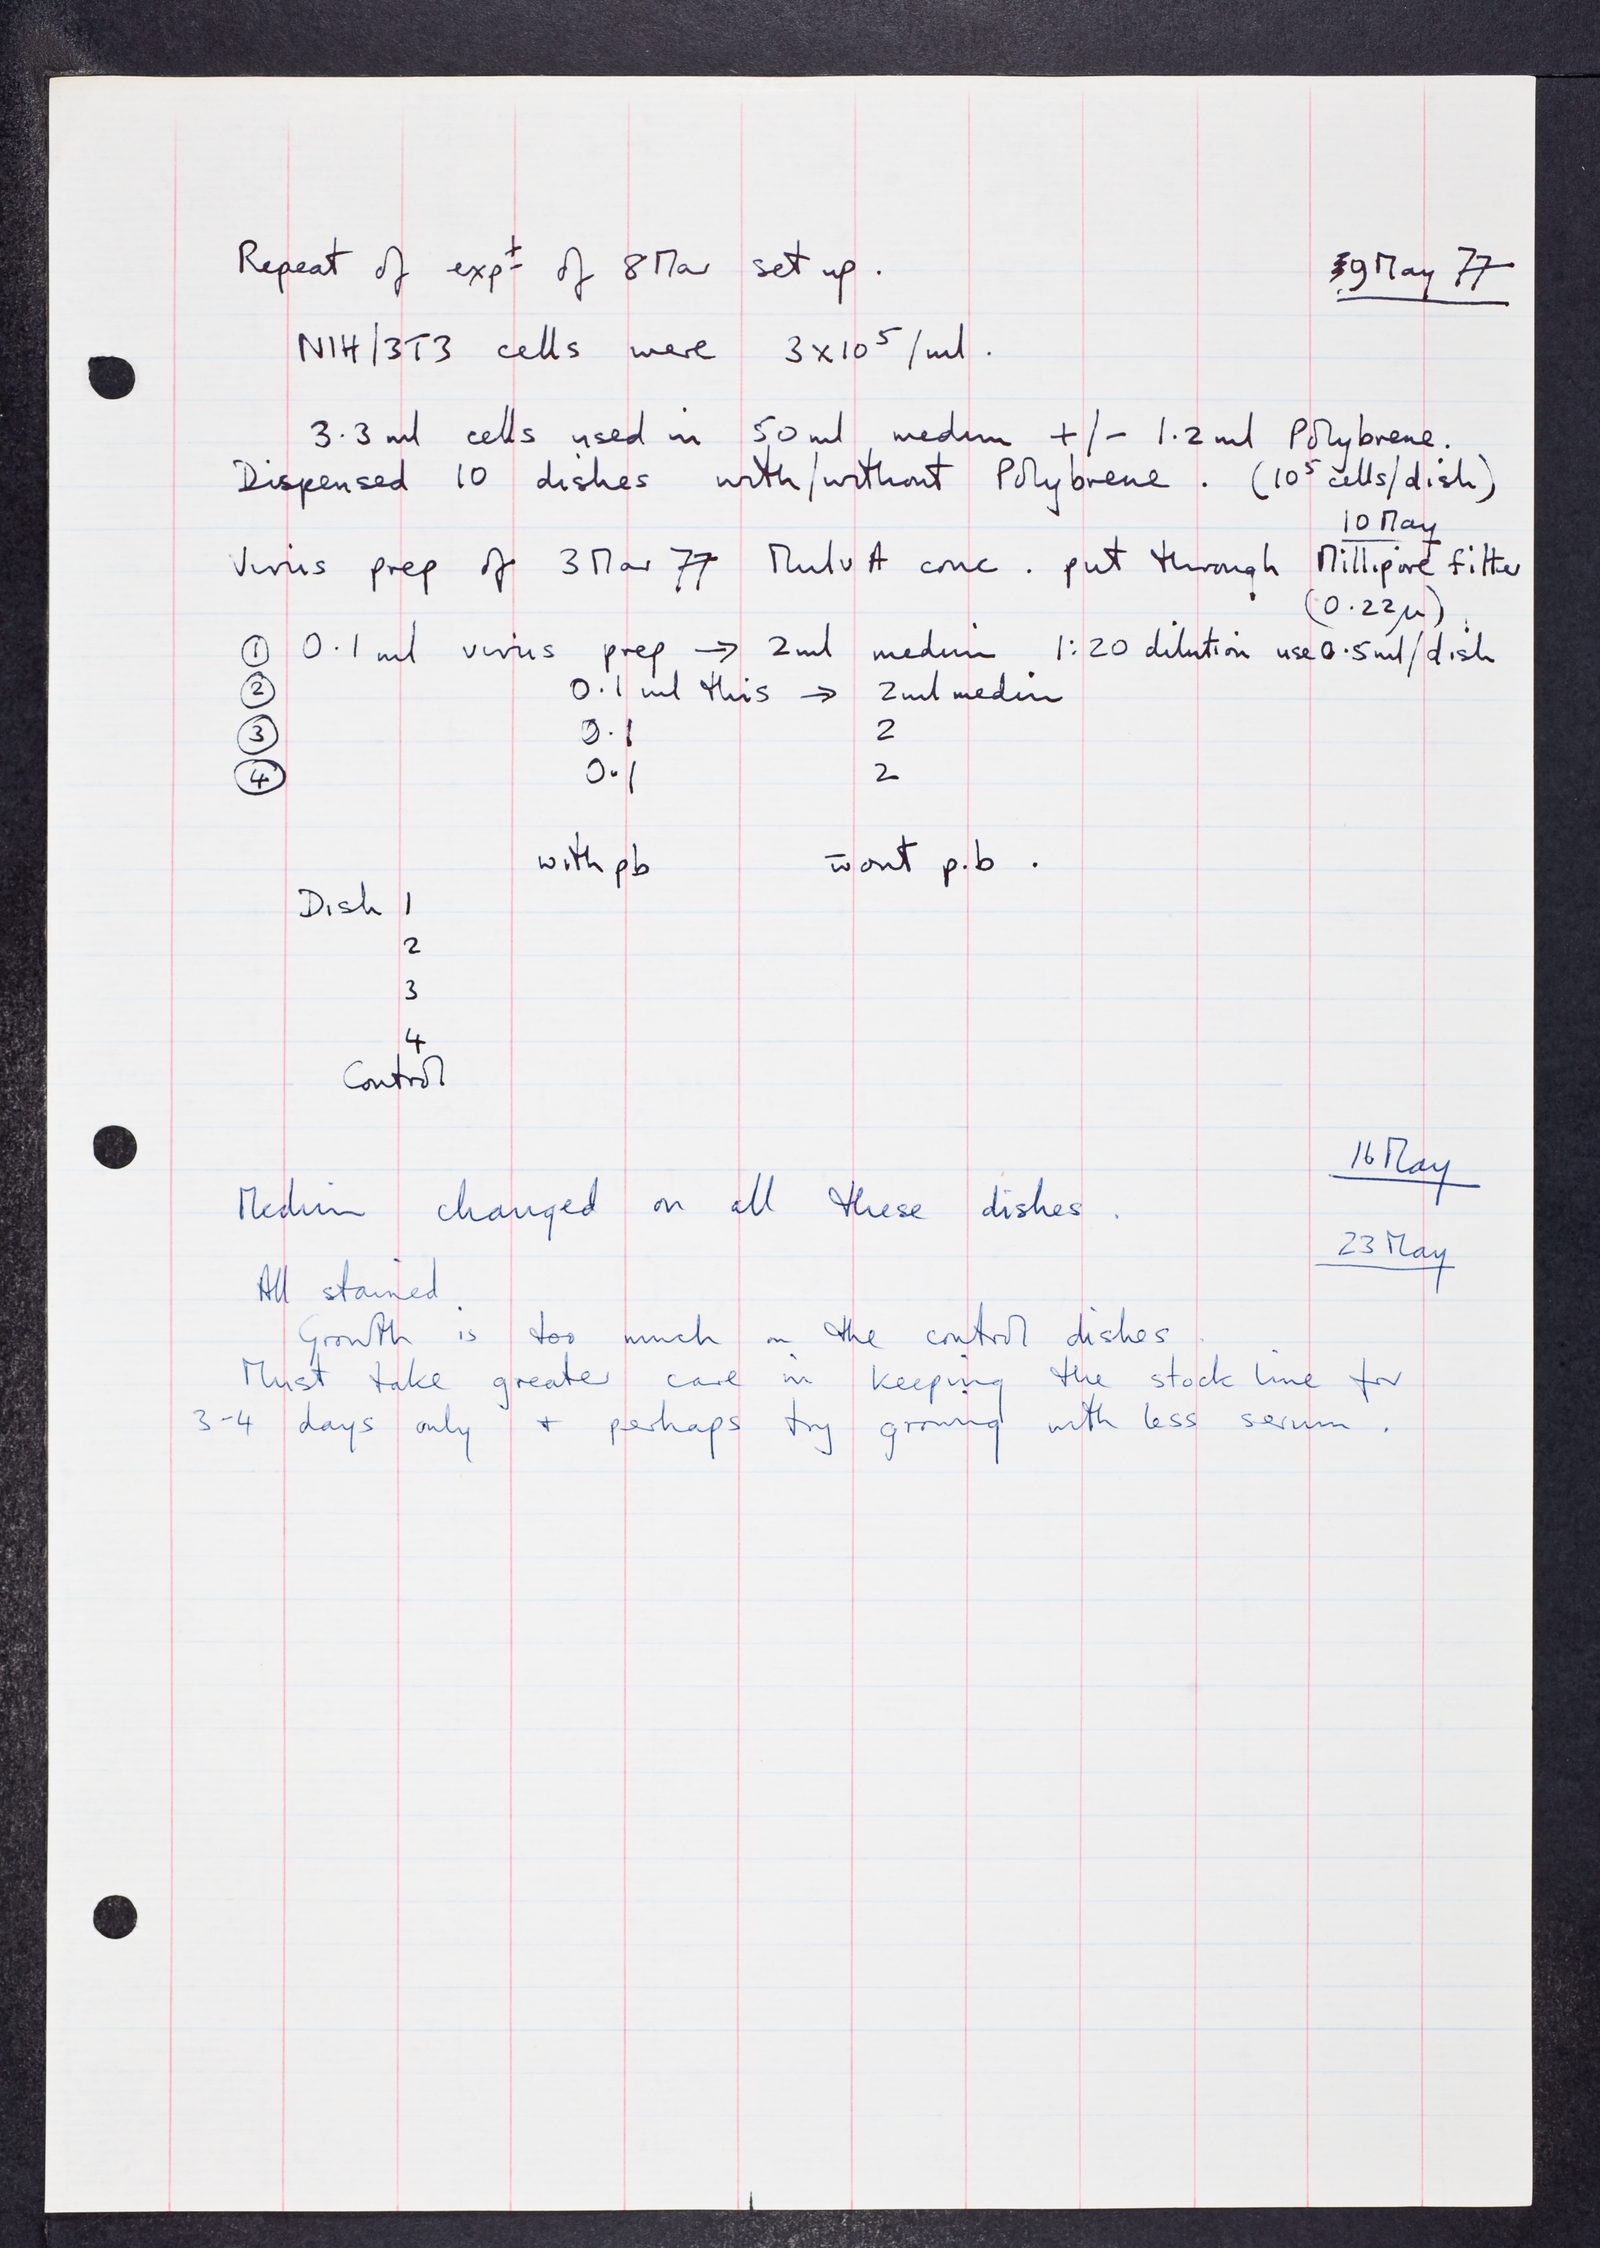 Repeat of expt of 8 Mar set up. 9 May 77
NIH/3T3 cells were 3x10⁵/ml.
3.3 ml cells used in 50ml medium +/- 1.2 ml Polybrene.
Dispensed 10 dishes with/without Polybrene. (10⁵ cells/dish)
10 May
Virus prep of 3 Mar 77 MulvA conc. put through Millipore filter
(0.22µ).
① 0.1 ml virus prep → 2ml medium 1:20 dilution use 0.5ml/dish
② 0.1 ml this → 2ml medium
③ 0.1 2
④ 0.1 2
with pb wout p.b.
Dish 1
2
3
4
Control
16 May
Medium changed on all these dishes.
23 May
All stained.
Growth is too much on the control dishes.
Must take greater care in keeping the stock line for
3-4 days only + perhaps try growing with less serum.